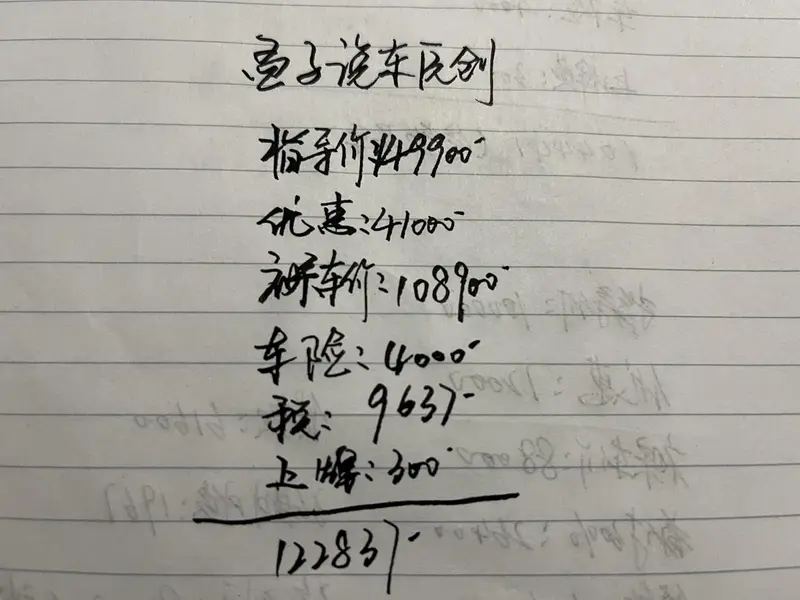 盒子说车原创
指导价:149900-
优惠:41000-
裸车价:108900-
车险:4000-
税: 9637-
上牌:300-
122837-